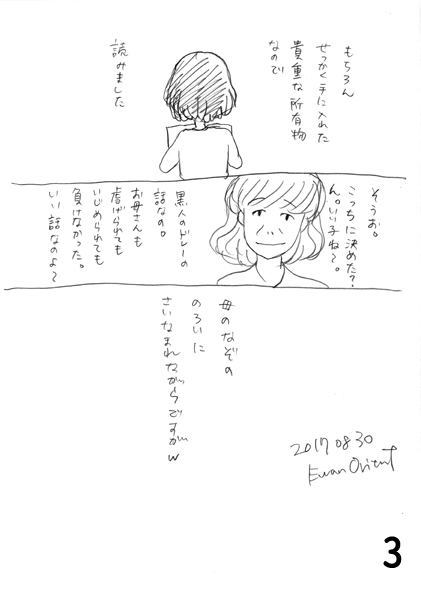 もちろん
せっかく手に入れた
貴重な所有物
なので
読みました
そうお。
こっちに決めた?
ん。いい子ね〜。
黒人のドレーの
話なの。
お母さんも
虐げられても
いじめられても
負けなかった。
いい話なのよ〜
母のなぞの
のろいに
さいなまれながらですがw
2017 08 30
Ewan Orient
3